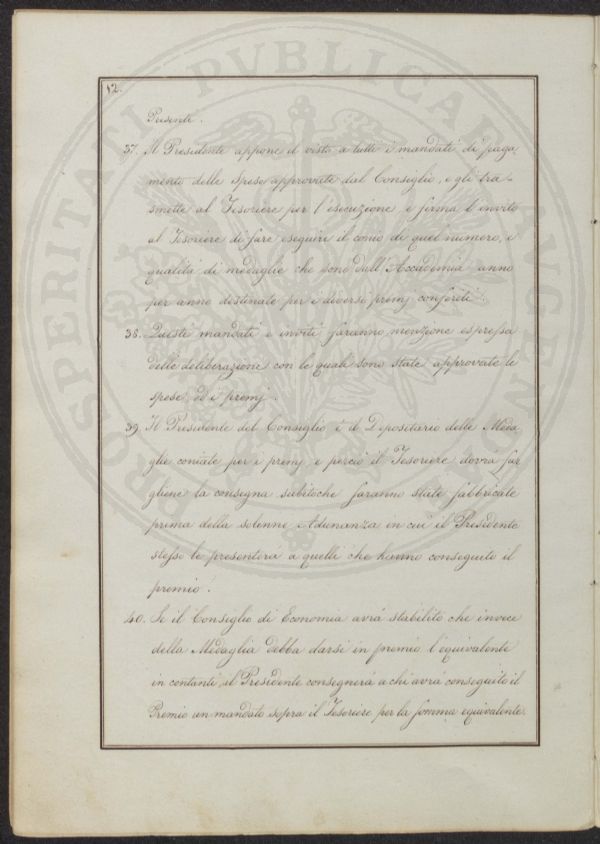 12.
Presente.
37. Il Presidente appone il visto a tutti i mandati di paga-
mento delle spese approvate dal Consiglio, e gli tra-
smette al Tesoriere per l'esecuzione e firma l'invito
al Tesoriere di fare eseguire il conio di quel numero, e
qualità di medaglie che sono dall'Accademia anno
per anno destinate per i diversi premj conferiti.
38. Questi mandati e inviti faranno menzione espressa
delle deliberazione con le quali sono state approvate le
spese, ed i premj.
39. Il Presidente del Consiglio è il Depositario delle Meda
glie coniate per i premj e perciò il Tesoriere dovrà far
gliene la consegna subitoche saranno state fabbricate
prima della solenne Adunanza in cui il Presidente
stesso le presenterà a quelli che hanno conseguito il
premio.
40. Se il Consiglio di Economia avrà stabilito che invece
della Medaglia debba darsi in premio l'equivalente
in contanti, il Presidente consegnerà a chi avrà conseguito il
Premio un mandato sopra il Tesoriere per la somma equivalente.
PROSPERITATI PVBLICAE AVGENDAE